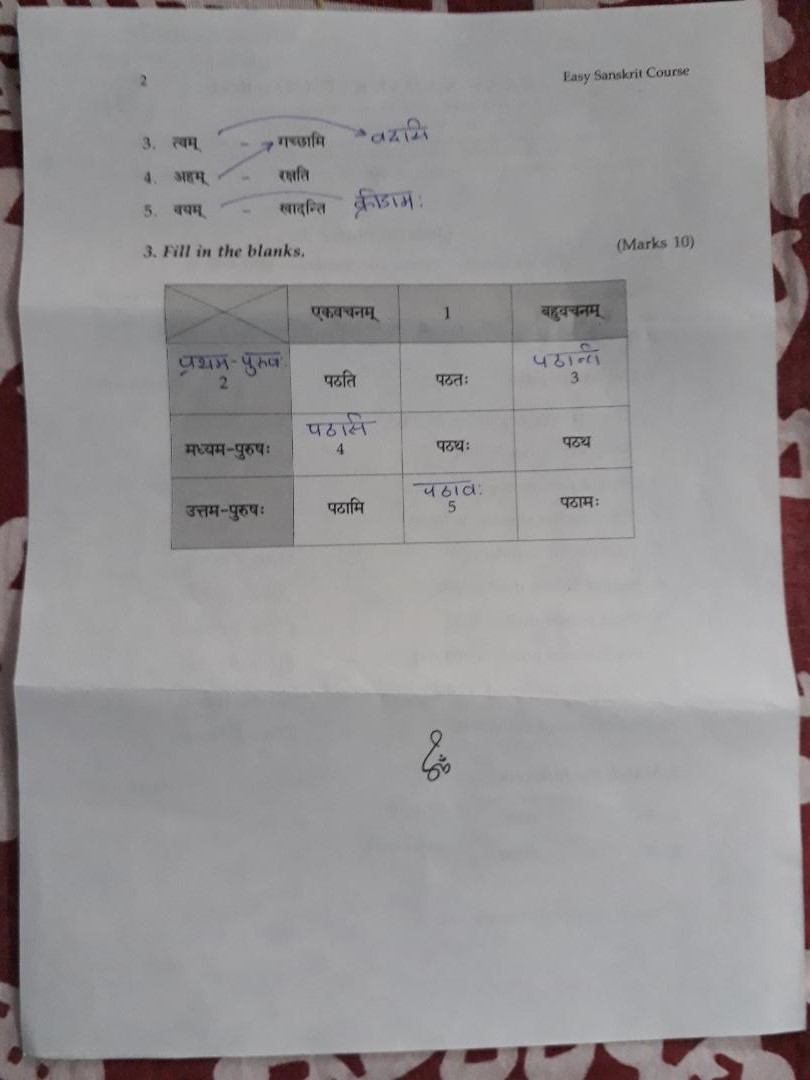 2 Easy Sanskrit Course
3. त्वम् - गच्छामि वदसि
4. अहम् - रक्षति
5. वयम् - खादन्ति क्रीडामः
3. Fill in the blanks. (Marks 10)
एकवचनम् 1 बहुवचनम्
प्रथम-पुरुषः पठन्ति
2 पठति पठतः 3
पठसि
मध्यम-पुरुषः 4 पठथः पठथ
पठावः
उत्तम-पुरुषः पठामि 5 पठामः
ॐ